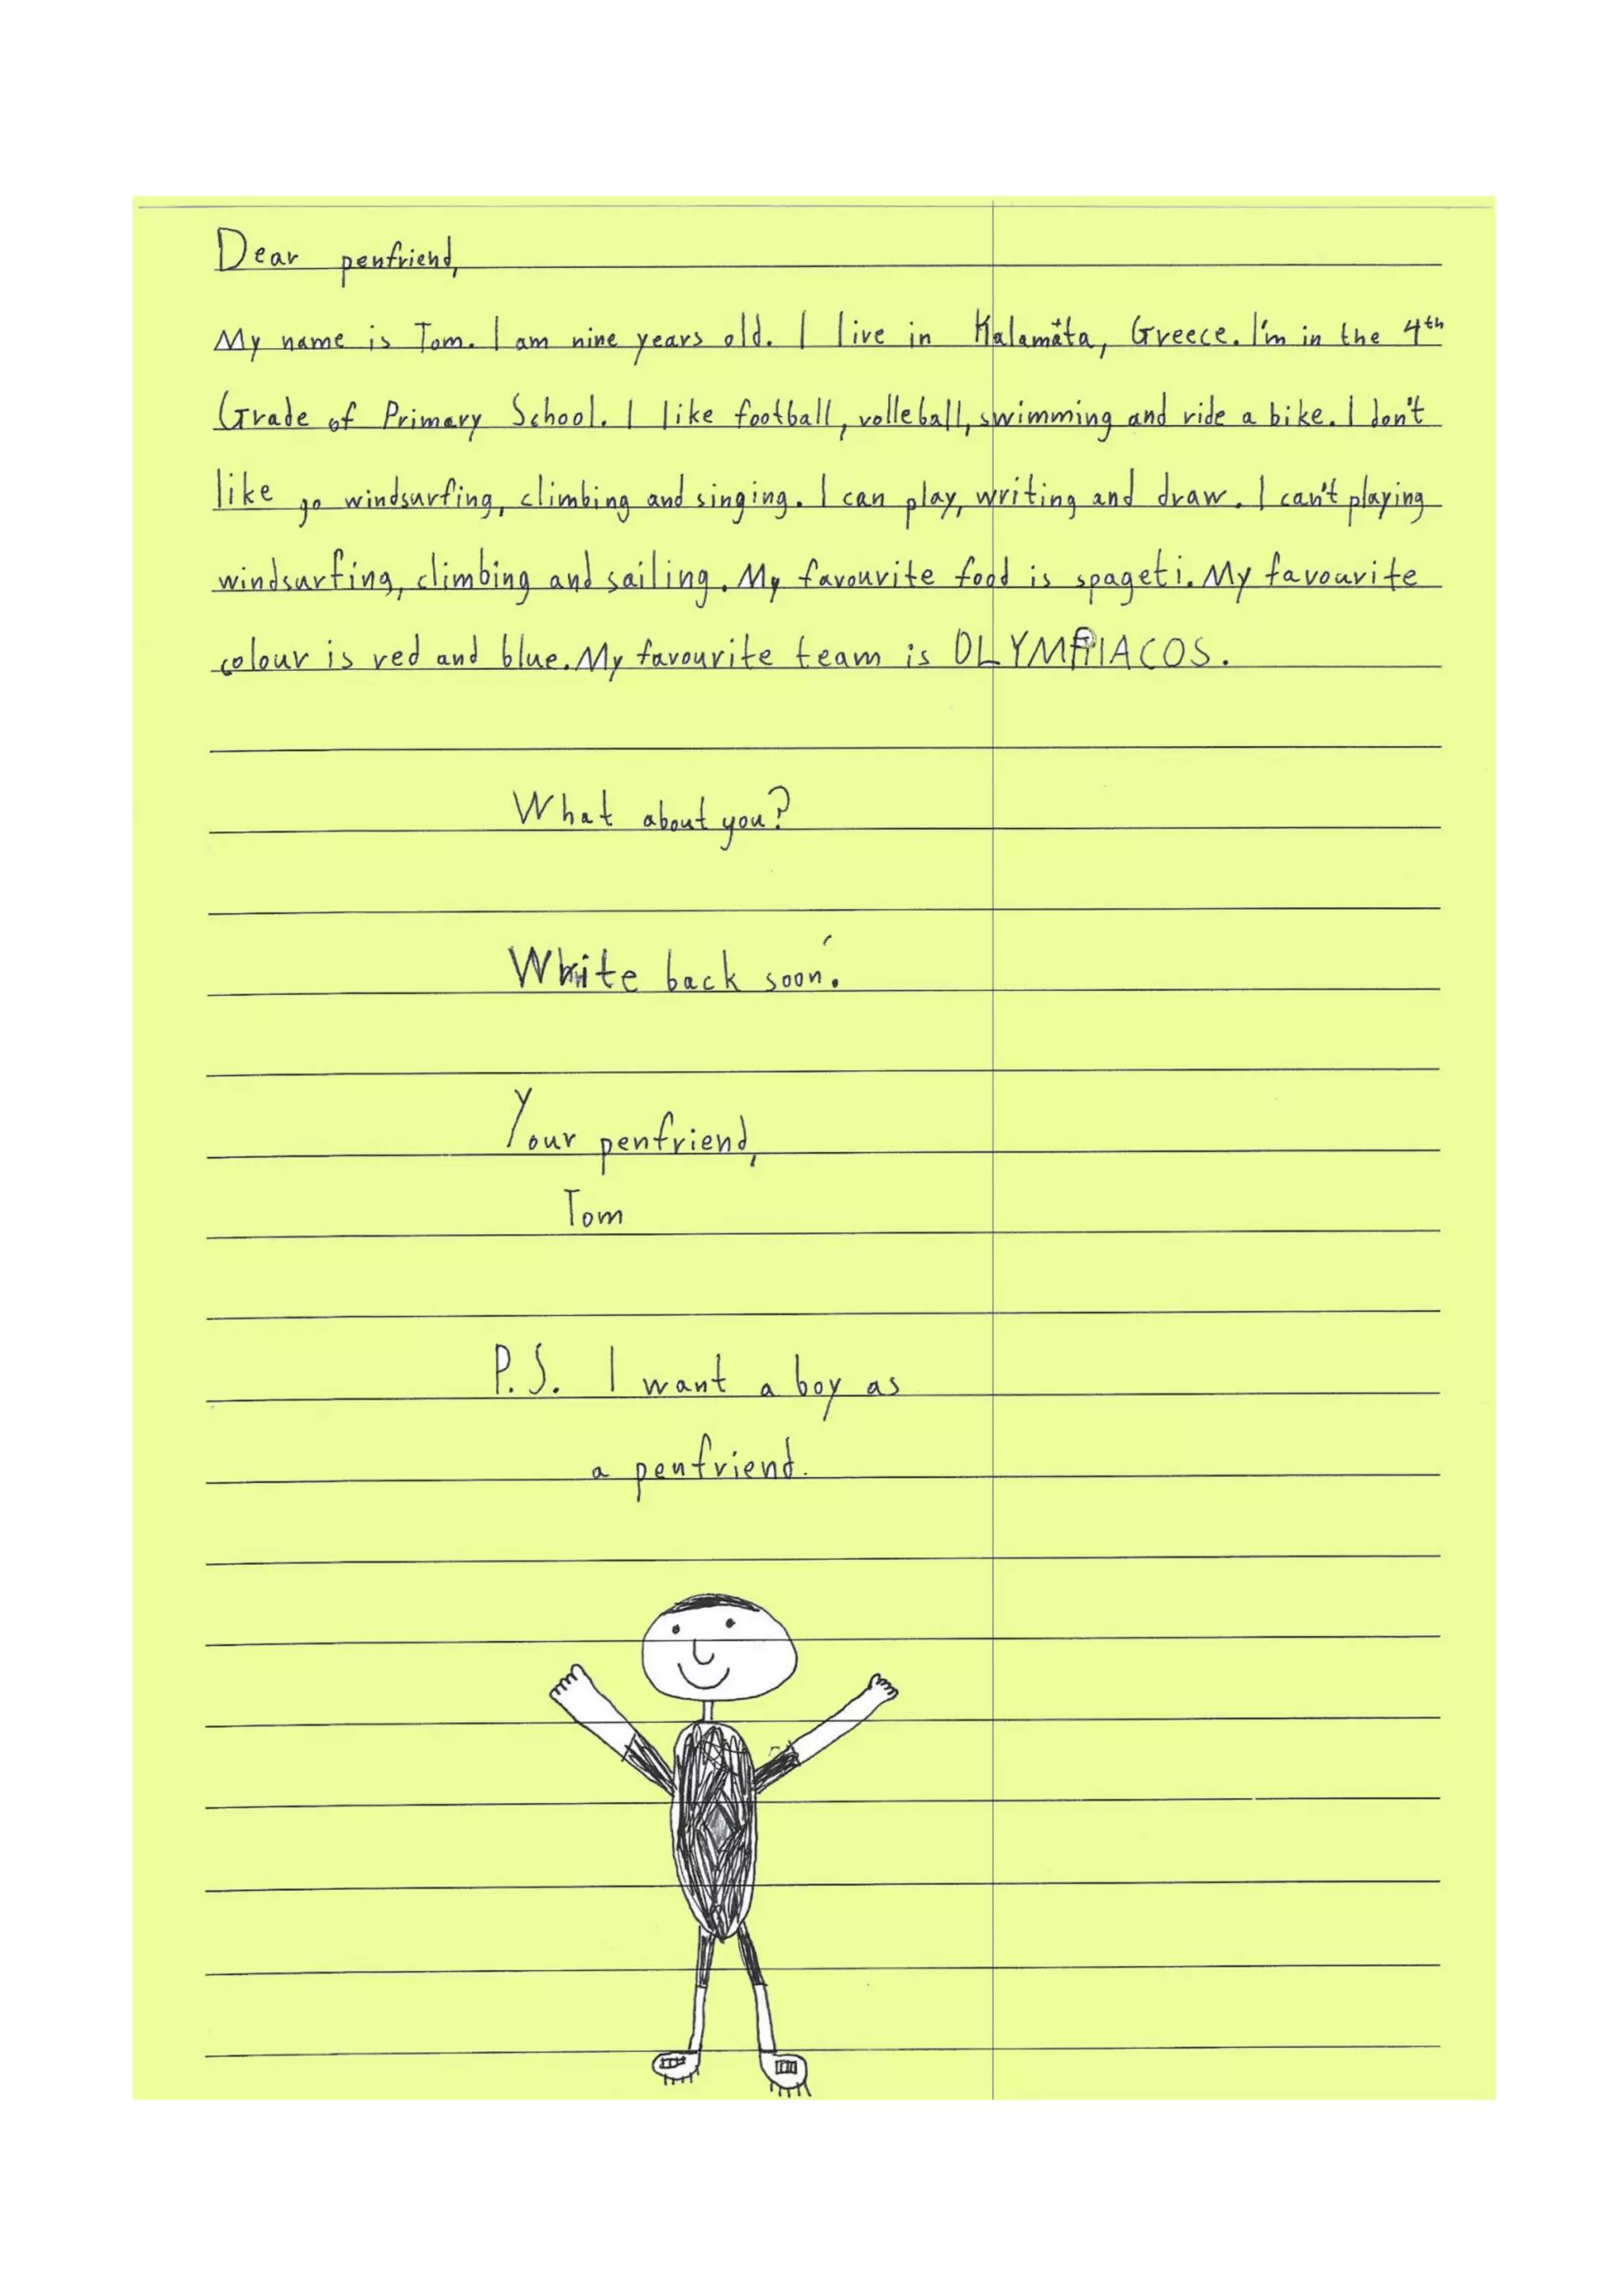 Dear penfriend,
My name is Tom. I am nine years old. I live in Kalamata, Greece. I'm in the 4th
Grade of Primary School. I like football, volleball, swimming and ride a bike. I don't
like go windsurfing, climbing and singing. I can play, writing and draw. I can't playing
windsurfing, climbing and sailing. My favourite food is spageti. My favourite
colour is red and blue. My favourite team is OLYMPIACOS.
What about you?
Write back soon.
Your penfriend,
Tom
P.S. I want a boy as
a penfriend.